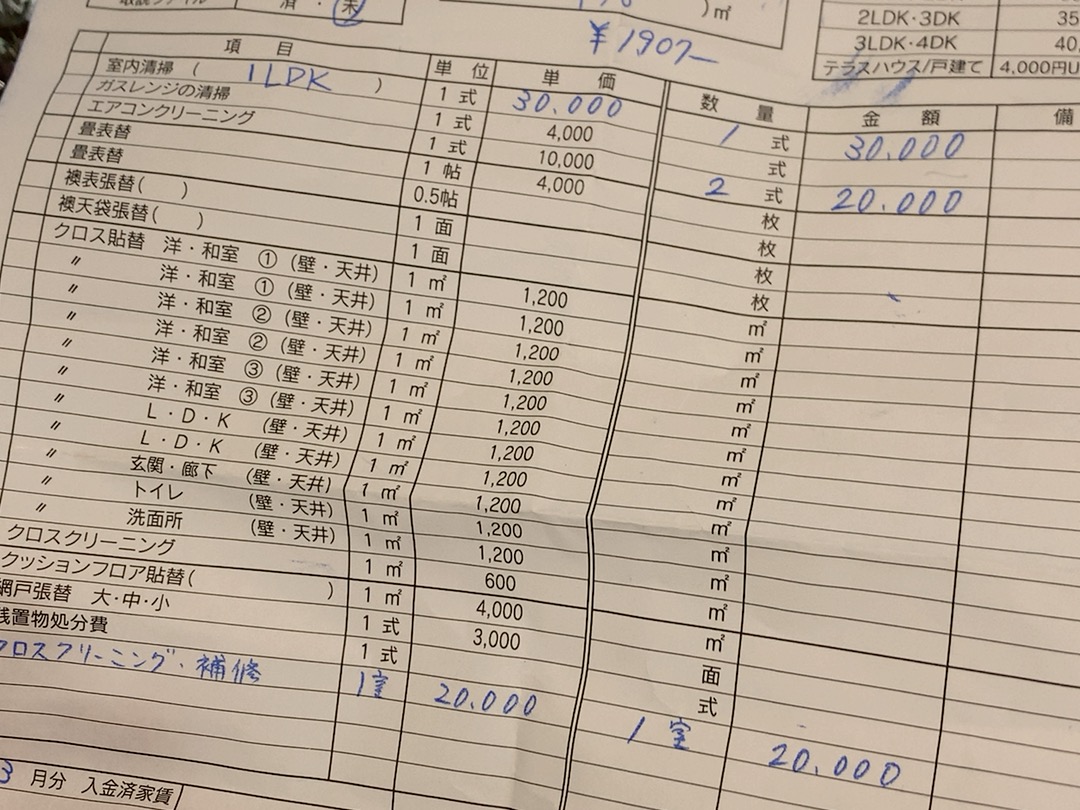 済・未
)㎡
¥1907-
2LDK・3DK 35
3LDK・4DK 40,
テラスハウス/戸建て 4,000円
項 目 単 位 単 価 数 量 金 額 備
室内清掃 ( 1LDK ) 1 式 30.000 1 式 30.000
ガスレンジの清掃 1 式 4,000 式
エアコンクリーニング 1 式 10,000 2 式 20.000
畳表替 1 帖 4,000 枚
畳表替 0.5帖 枚
襖表張替( ) 1 面 枚
襖天袋張替( ) 1 面 枚
クロス貼替 洋・和室 ① (壁・天井) 1 ㎡ 1,200 ㎡
〃 洋・和室 ① (壁・天井) 1 ㎡ 1,200 ㎡
〃 洋・和室 ② (壁・天井) 1 ㎡ 1,200 ㎡
〃 洋・和室 ② (壁・天井) 1 ㎡ 1,200 ㎡
〃 洋・和室 ③ (壁・天井) 1 ㎡ 1,200 ㎡
〃 洋・和室 ③ (壁・天井) 1 ㎡ 1,200 ㎡
〃 L・D・K (壁・天井) 1 ㎡ 1,200 ㎡
〃 L・D・K (壁・天井) 1 ㎡ 1,200 ㎡
〃 玄関・廊下 (壁・天井) 1 ㎡ 1,200 ㎡
〃 トイレ (壁・天井) 1 ㎡ 1,200 ㎡
〃 洗面所 (壁・天井) 1 ㎡ 1,200 ㎡
クロスクリーニング 1 ㎡ 600 ㎡
クッションフロア貼替( ) 1 ㎡ 4,000 ㎡
網戸張替 大・中・小 1 式 3,000 面
残置物処分費 1 式 式
クロスクリーニング・補修 1室 20.000 1 室 20.000
3 月分 入金済家賃